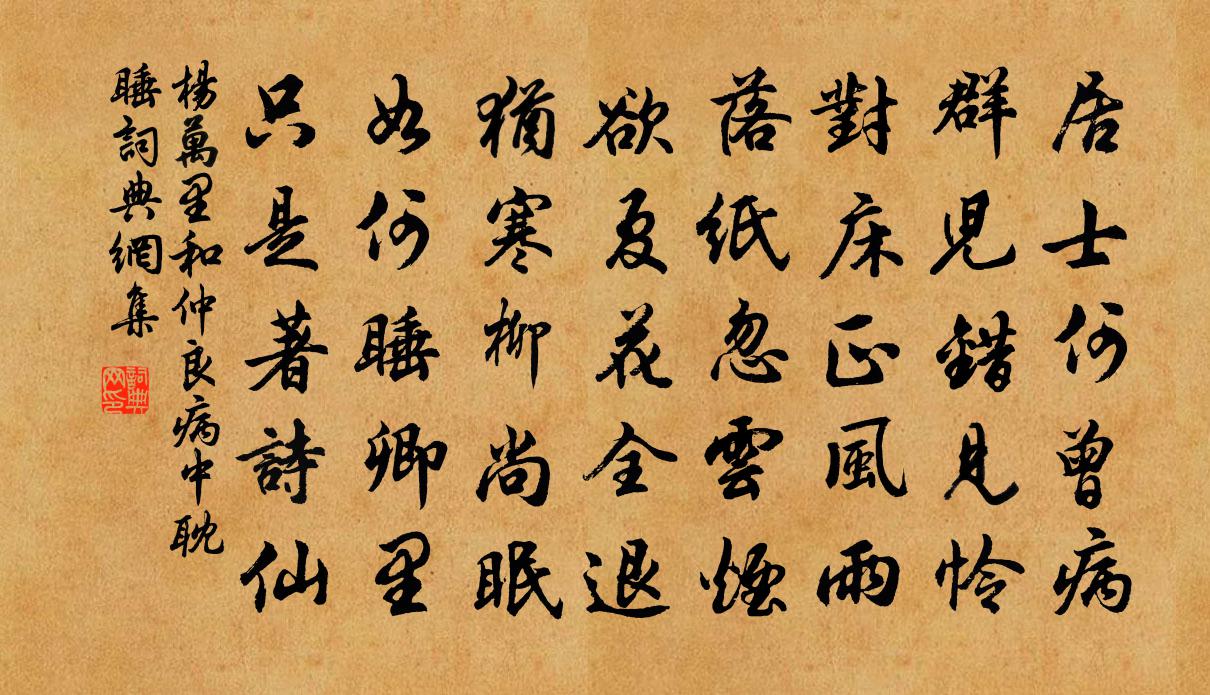 居士何曾病
群兒錯見怜
對床正風雨
落紙忽雲煙
欲夏花全退
猶寒柳尚眠
如何睡鄉里
只是著詩仙
楊萬里和仲良病中耽
睡詞典網集
詞典
网印